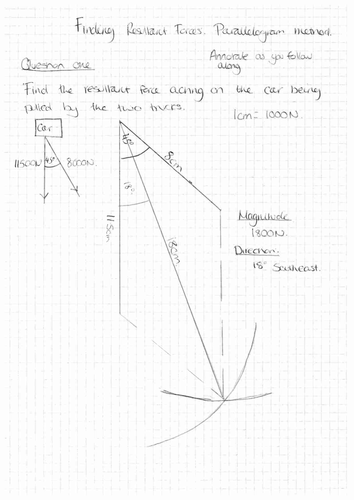 Finding Resultant Forces. Parallelogram method.
Annotate as you follow along
Question one
Find the resultant force acting on the car being
pulled by the two
1cm = 1000N
Car
11500N
45°
8000N
45°
8cm
18°
11.5cm
18cm
Magnitude
1800N.
Direction
18° Southeast.